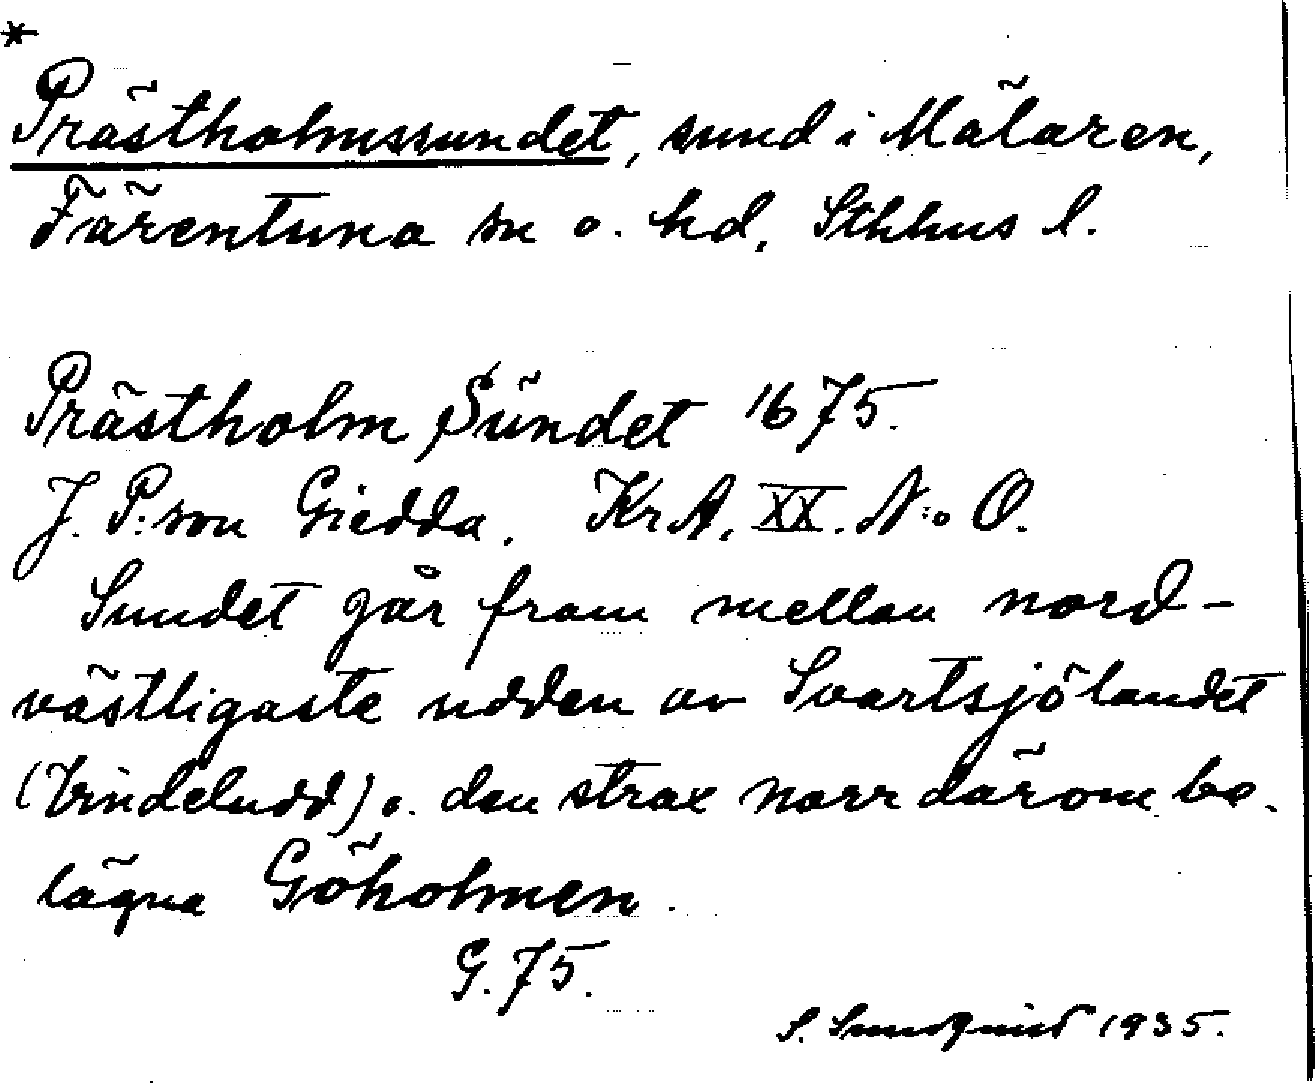 *
Prästholmssundet, sund i Mälaren,
Färentuna sn o. hd, Sthhus l.
Prästholm Sündet 1675.
J. P:son Giedda. KrA, XX. N:o O.
Sundet går fram mellan nord-
västligaste udden av Svartsjölandet
(Vindeludd) o. den strax norr därom be-
lägna Göholmen.
G. 75.
S. Sundquist 1935.